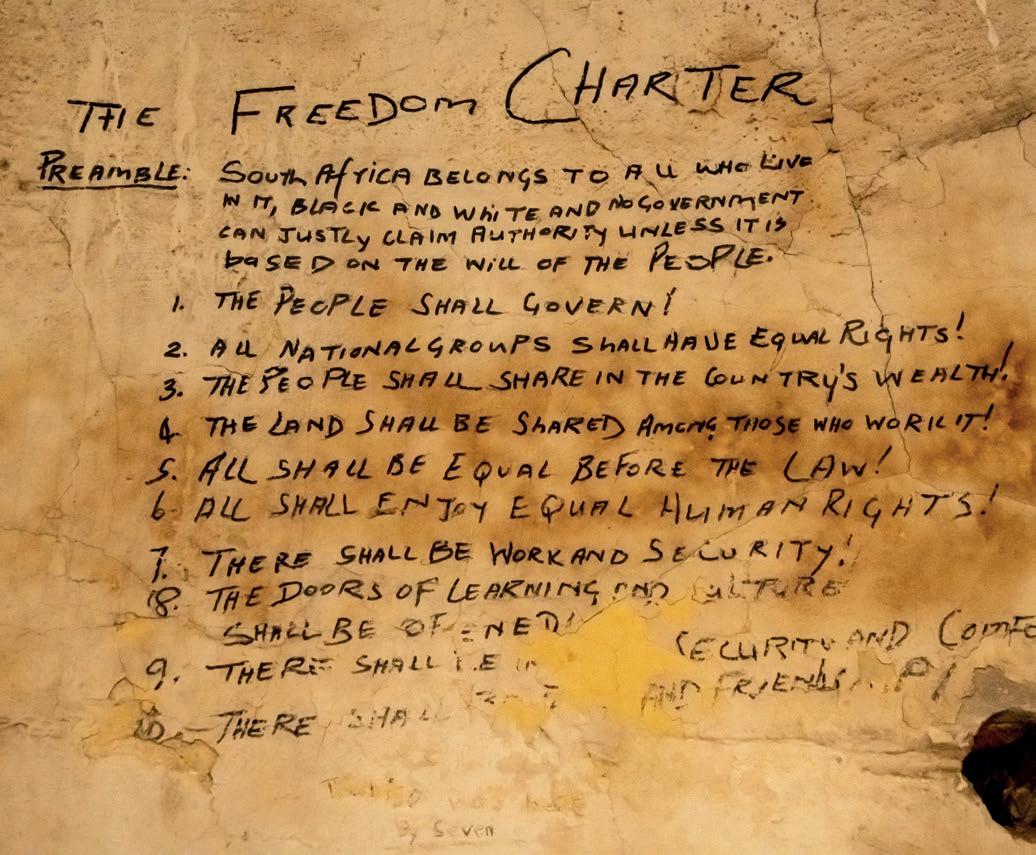 THE FREEDOM CHARTER
PREAMBLE: SOUTH AFRICA BELONGS TO ALL WHO LIVE
IN IT, BLACK AND WHITE AND NO GOVERNMENT
CAN JUSTLY CLAIM AUTHORITY UNLESS IT IS
BASED ON THE WILL OF THE PEOPLE.
1. THE PEOPLE SHALL GOVERN!
2. ALL NATIONAL GROUPS SHALL HAVE EQUAL RIGHTS!
3. THE PEOPLE SHALL SHARE IN THE COUNTRY'S WEALTH!
4. THE LAND SHALL BE SHARED AMONG THOSE WHO WORK IT!
5. ALL SHALL BE EQUAL BEFORE THE LAW!
6. ALL SHALL ENJOY EQUAL HUMAN RIGHTS!
7. THERE SHALL BE WORK AND SECURITY!
8. THE DOORS OF LEARNING AND CULTURE
SHALL BE OPENED
9. THERE SHALL BE SECURITY AND COMFO
10. THERE SHALL AND FRIENDSHIP
was here
By Seven